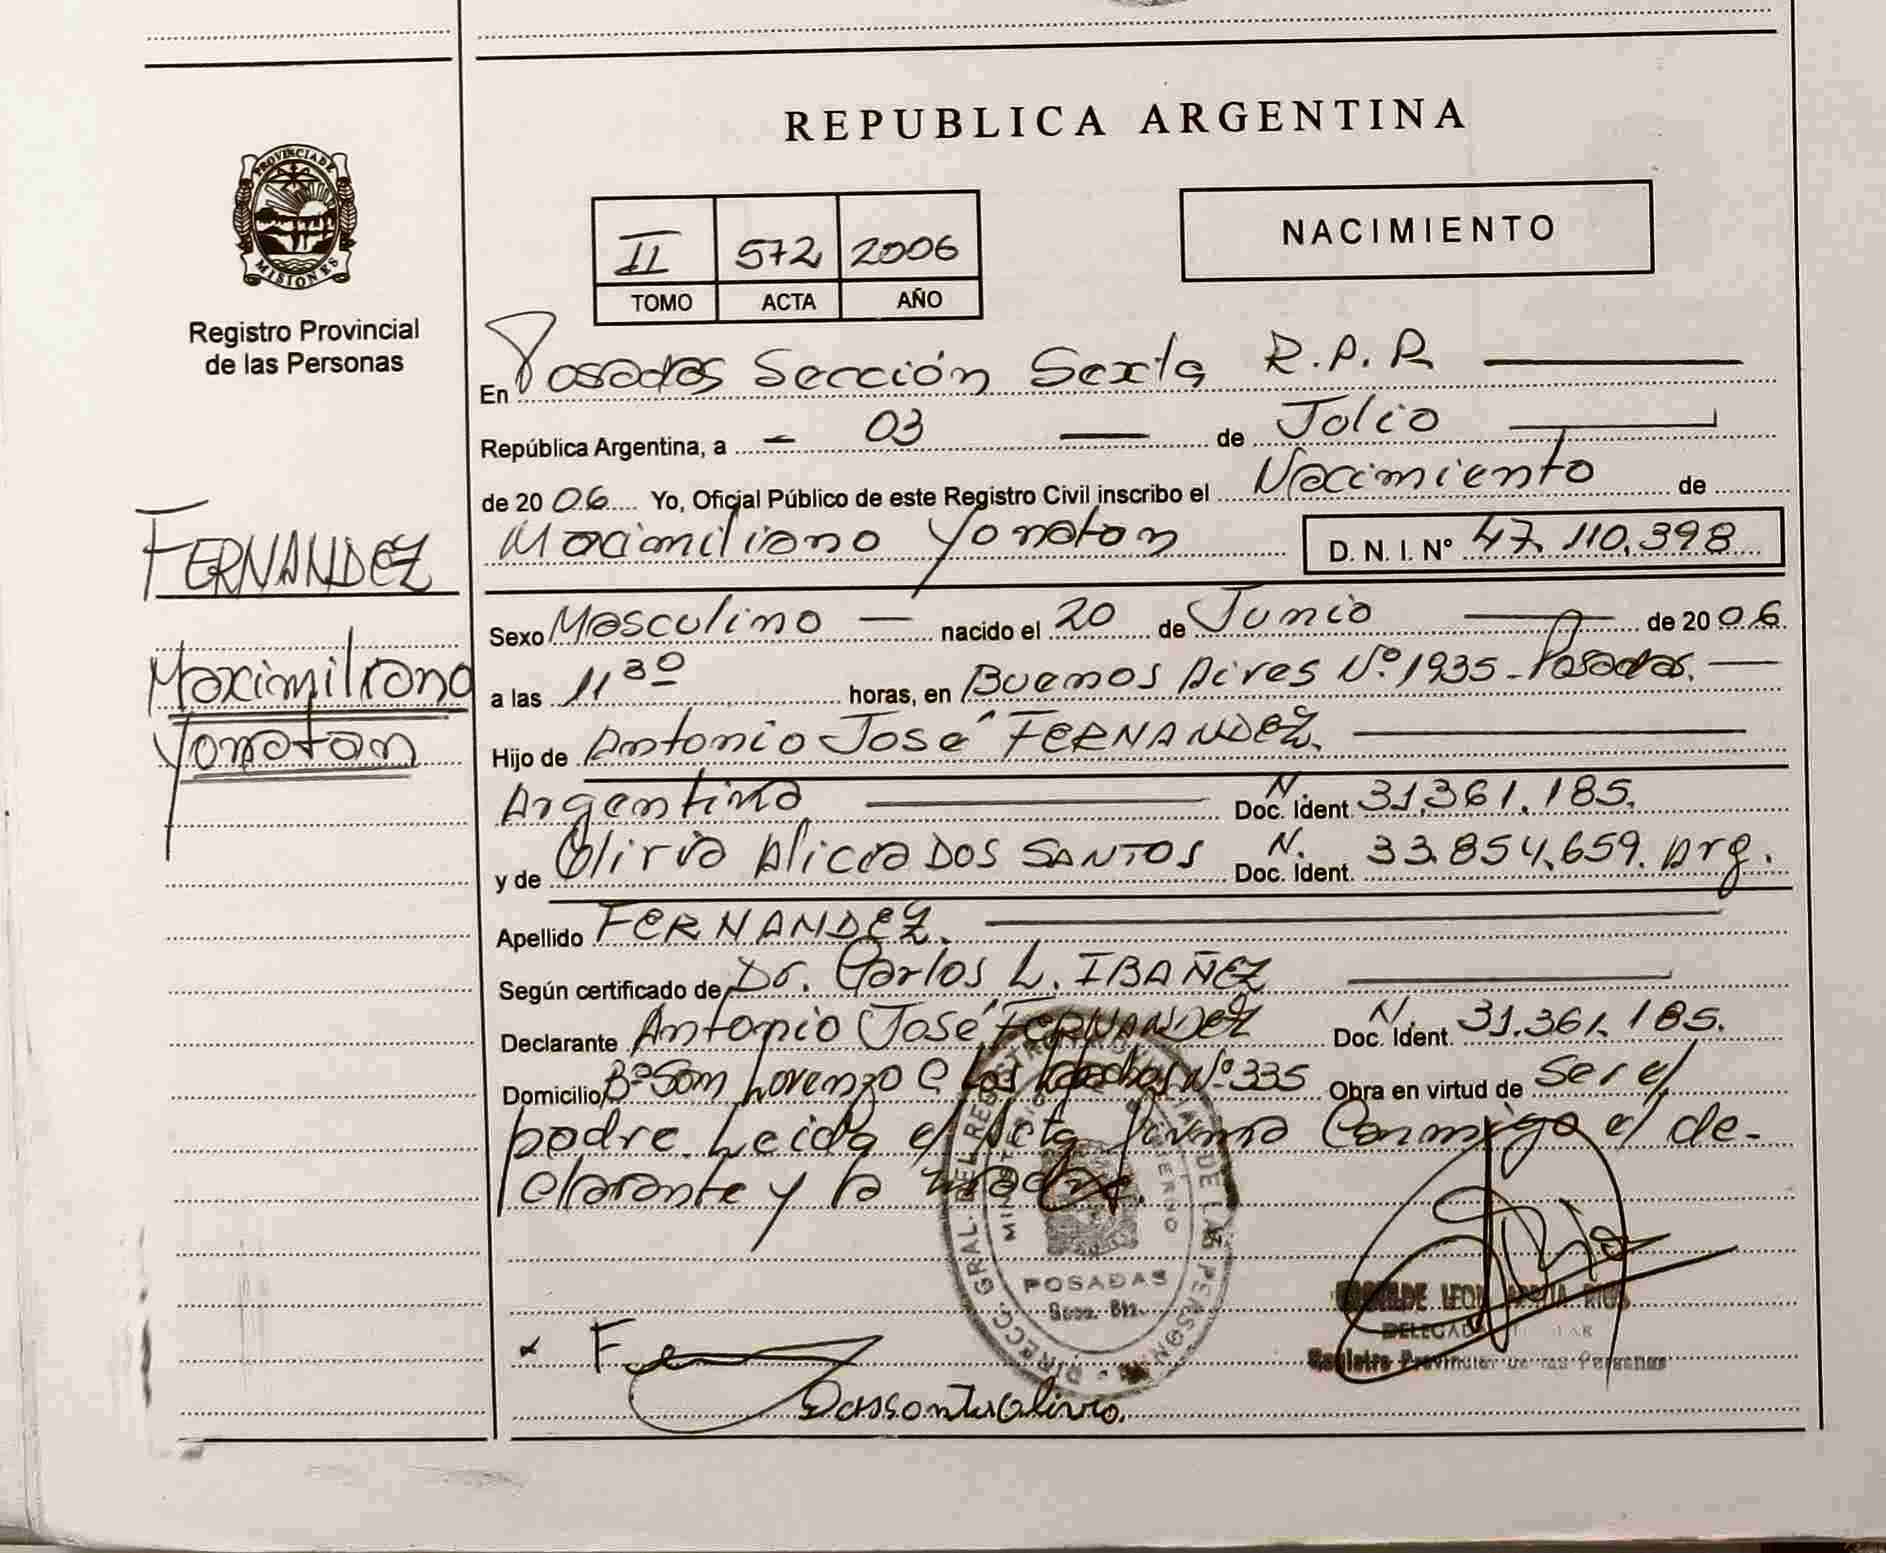 REPUBLICA ARGENTINA
PROVINCIA DE
MISIONES
Registro Provincial
de las Personas
II 572 2006
TOMO ACTA AÑO
NACIMIENTO
En Posadas Sección Sexta R.P.P
República Argentina, a 03 de Jolio
de 2006 Yo, Oficial Público de este Registro Civil inscribo el Nacimiento de
Maximiliano Yonatan D. N. I. Nº 47.110.398
FERNANDEZ
Maximiliano
Yonatan
Sexo Masculino nacido el 20 de Junio de 2006
a las 11 30 horas, en Buenos Aires Nº 1935 - Posadas.
Hijo de Antonio José FERNANDEZ.
Argentina Doc. Ident. N. 31.361.185.
y de Aliria Alicia DOS SANTOS Doc. Ident. N. 33.854.659. Arg.
Apellido FERNANDEZ.
Según certificado de Dr. Carlos L. IBAÑEZ
Declarante Antonio José FERNANDEZ Doc. Ident. N. 31.361.185.
Domicilio Bº San Lorenzo C Los Nº 335 Obra en virtud de Ser el
padre. Leida el Acta firma Conmigo el de-
clarante y la madre.
DIRECC. GRAL. DEL REGISTRO PROVINCIAL DE LAS PERSONAS
POSADAS
Secc. 6ta.
DELEGADA TITULAR
Registro Provincial de las Personas